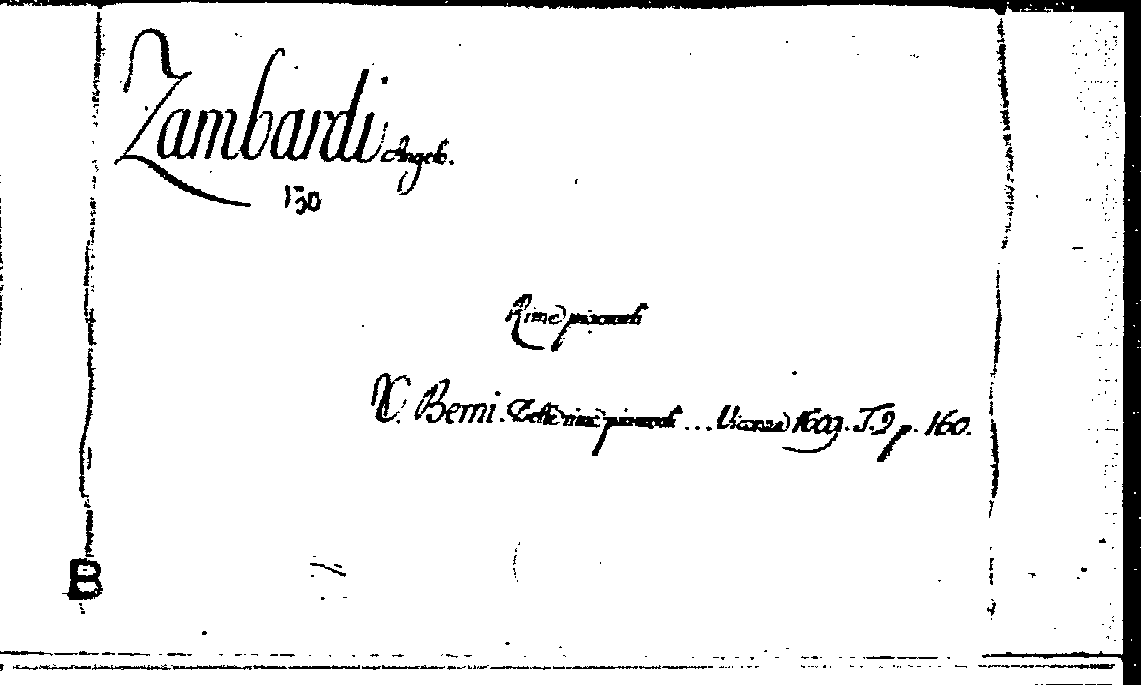 Zambardi Angelo.
150
Rime piacevoli
V. Berni. Delle rime piacevoli ... Vicenza 1609. T.2 p. 160.
B